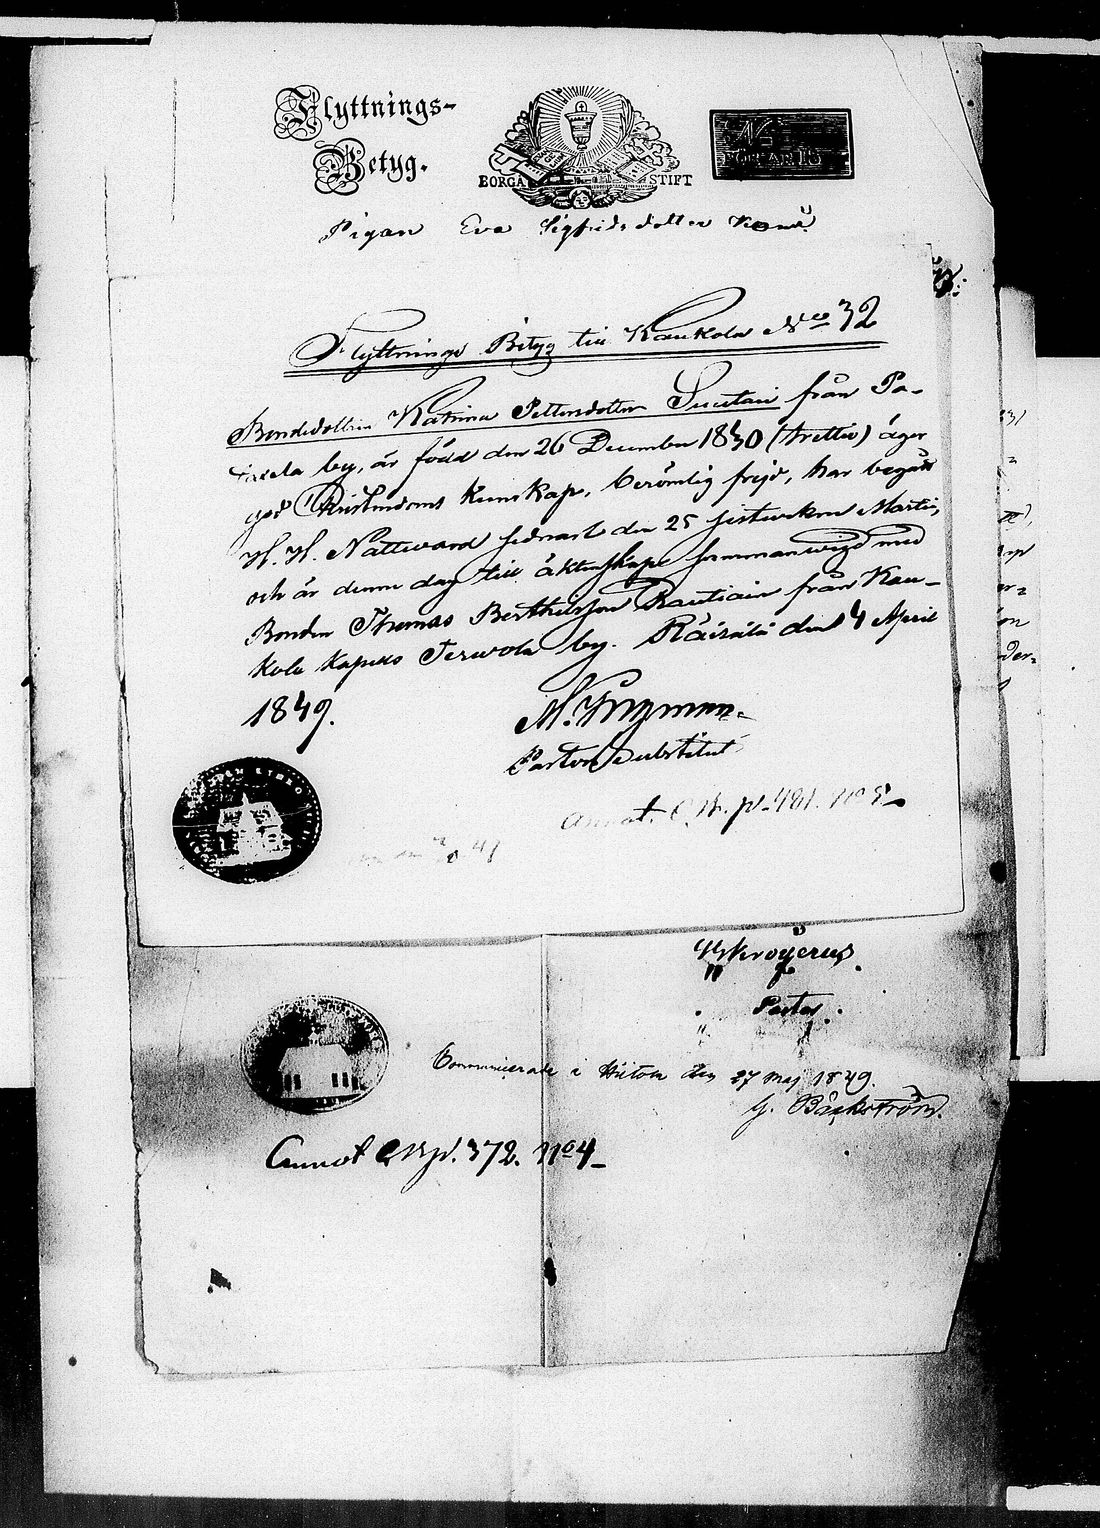 Flyttnings-
Betyg.
BORGÅ STIFT
Pigan Eva Sigfridsdotter
Flyttnings Betyg till Kaukola No 32
Bondedottren Katrina Pettersdotter Suutari från Pa-
by, är född den 26 December 1830 (trettio) äger
god Christendoms Kunskap, berömlig frejd, har begått
H. H. Nattvard sednast den 25 sistwekne Martii,
och är denna dag till äktenskap sammanwigd med
Bonden Thomas Berthelsson Rautiain från Kau-
kola Kapells Terwola by. Räisälä den 4 April
1849.
M.
Pastor Substitut
Annot. C. B. p. 481. No
49
Pastor.
Communicerade i Hiitola den 27 Maj 1849.
G. Bäckström.
Annot C B p. 372. No 4